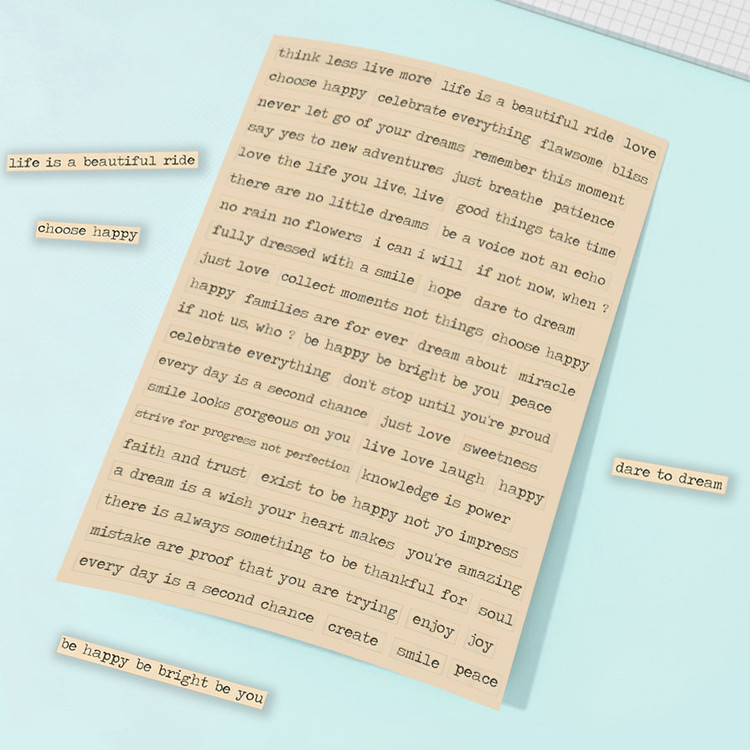 think less live more life is a beautiful ride love
choose happy celebrate everything flawsome bliss
never let go of your dreams remember this moment
say yes to new adventures just breathe patience
love the life you live, live good things take time
there are no little dreams be a voice not an echo
no rain no flowers i can i will if not now, when ?
fully dressed with a smile hope dare to dream
just love collect moments not things choose happy
happy families are for ever dream about miracle
if not us, who ? be happy be bright be you peace
celebrate everything don't stop until you're proud
every day is a second chance just love sweetness
smile looks gorgeous on you live love laugh happy
strive for progress not perfection knowledge is power
faith and trust exist to be happy not yo impress
a dream is a wish your heart makes you're amazing
there is always something to be thankful for soul
mistake are proof that you are trying enjoy joy
every day is a second chance create smile peace
life is a beautiful ride
choose happy
dare to dream
be happy be bright be you